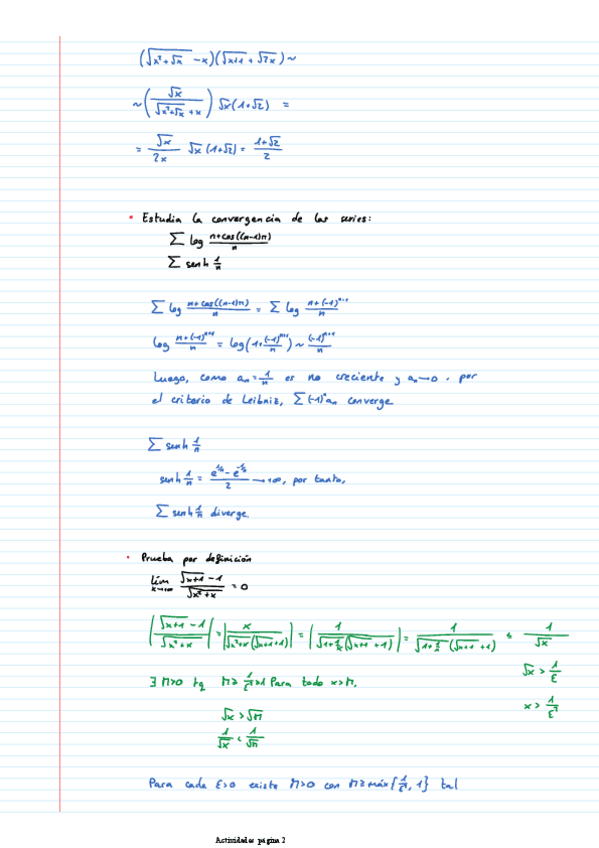 (√(x²+√x) - x)(√(x+1) + √(2x)) ~
~ (√x / (√(x²+√x) + x)) √x (1+√2) =
= √x / 2x √x (1+√2) = (1+√2) / 2
• Estudia la convergencia de las series:
∑ log (n+cos((n-1)π)) / n
∑ senh 1/n
∑ log (n+cos((n-1)π)) / n = ∑ log (n+(-1)ⁿ⁺¹) / n
log (n+(-1)ⁿ⁺¹) / n = log(1+ (-1)ⁿ⁺¹/n) ~ (-1)ⁿ⁺¹/n
Luego, como aₙ = 1/n es no creciente y aₙ → 0, por
el criterio de Leibniz, ∑ (-1)ⁿ aₙ converge
∑ senh 1/n
senh 1/n = (e^(1/n) - e^(-1/n)) / 2 → +∞, por tanto,
∑ senh 1/n diverge
• Prueba por definición
lím x→+∞ (√(x+1) - 1) / √(x²+x) = 0
|(√(x+1) - 1) / √(x²+x)| = |x / (√(x²+x) (√(x+1)+1))| = |1 / (√(1+1/x) (√(x+1)+1))| = 1 / (√(1+1/x) (√(x+1)+1)) < 1/√x
√x > 1/ε
∃ M>0 tq M ≥ 1/ε² ≥ 1 Para todo x>M,
x > 1/ε²
√x > √M
1/√x < 1/√M
Para cada ε>0 existe M>0 con M ≥ máx{1/ε², 1} tal
Actividades página 2